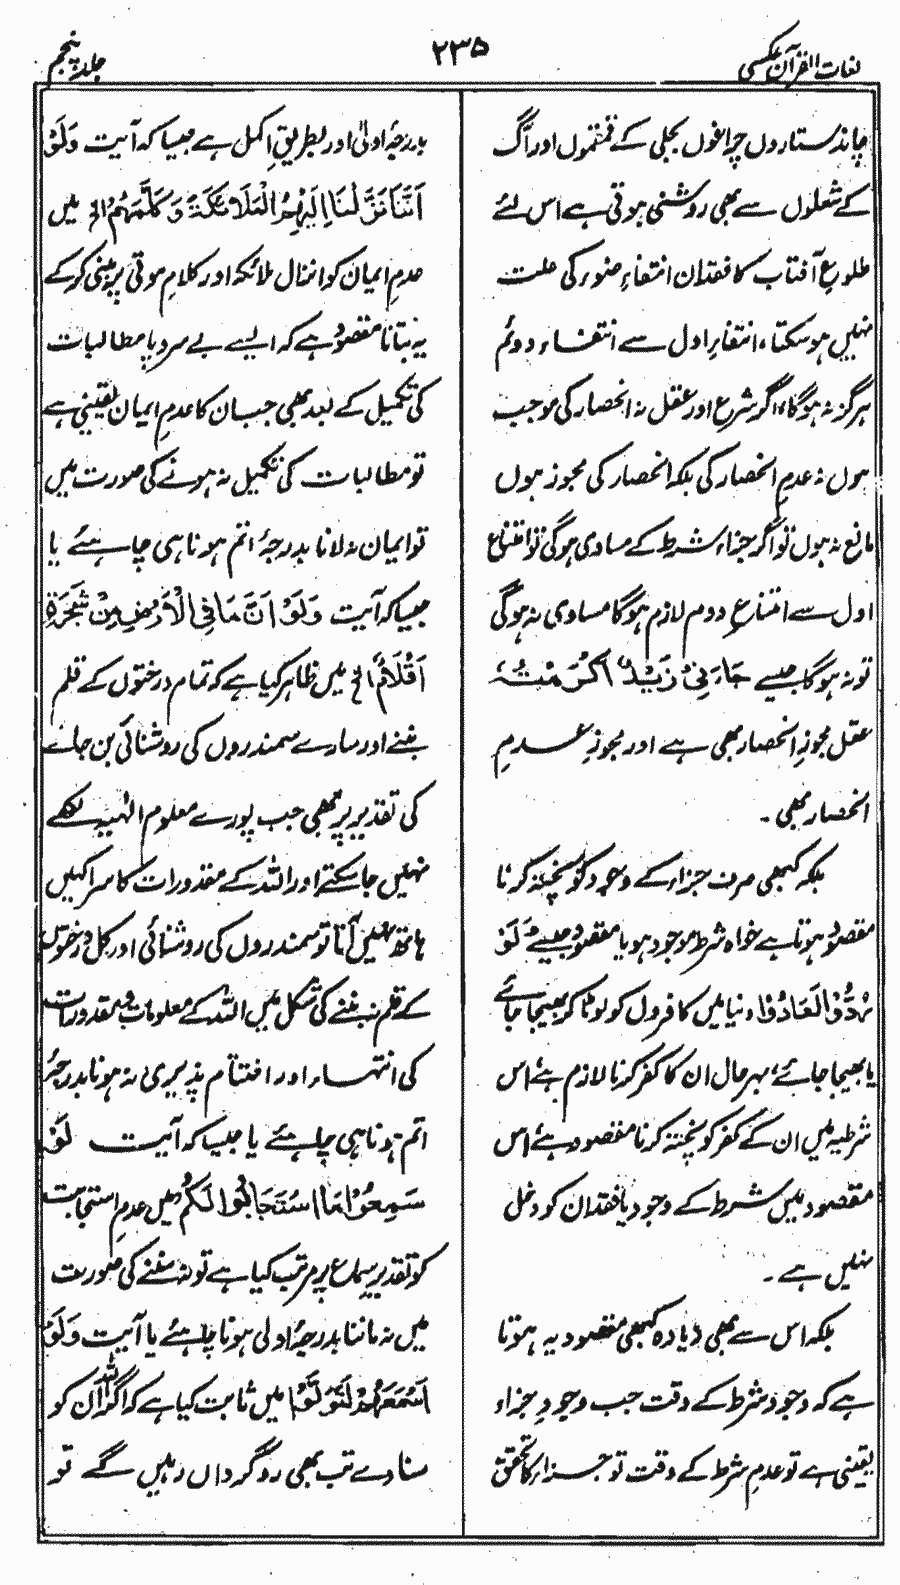 لغات القرآن عکسی
۲۳۵
جلد پنجم
چاند ستاروں چراغوں بجلی کے قمقموں اور آگ
کے شعلوں سے بھی روشنی ہوتی ہے اس لئے
طلوعِ آفتاب کا فقدان انتفاءِ ضوء کی علت
نہیں ہو سکتا، انتفاءِ اول سے انتفاء دوئم
ہرگز نہ ہوگا، اگر شرع اور عقل نہ انحصار کی موجب
ہوں نہ عدمِ انحصار کی بلکہ انحصار کی مجوز ہوں
مانع نہ ہوں تو اگر جزاء شرط کے مساوی ہوگی تو امتناع
اول سے امتناعِ دوم لازم ہوگا مساوی نہ ہوگی
تو نہ ہوگا جیسے جَاءَنِیْ زَیْدٌ اَکْرَمْتُہٗ
عقل مجوزِ انحصار بھی ہے اور مجوزِ عدمِ
انحصار بھی ۔
بلکہ کبھی صرف جزاء کے وجود کو پختہ کرنا
مقصود ہوتا ہے خواہ شرط موجود ہو یا مفقود جیسے لَوْ
رُدُّوْا لَعَادُوْا دنیا میں کافروں کو لوٹا کر بھیجا جائے
یا بھیجا جائے، بہرحال ان کا کفر کرنا لازم ہے اس
شرطیہ میں ان کے کفر کو پختہ کرنا مقصود ہے اس
مقصود میں شرط کے وجود یا فقدان کو دخل
نہیں ہے ۔
بلکہ اس سے بھی زیادہ کبھی مقصود یہ ہوتا
ہے کہ وجودِ شرط کے وقت جب وجودِ جزاء
یقینی ہے تو عدمِ شرط کے وقت تو جزاء کا تحقق
بدرجۂ اولیٰ اور بطریقِ اکمل ہے جیسا کہ آیت وَلَوْ
اَنَّنَا نَزَّلْنَا اِلَیْہِمُ الْمَلَائِکَۃَ وَکَلَّمَہُمُ الخ میں
عدمِ ایمان کو انزال ملائکہ اور کلامِ موتی پر مبنی کر کے
یہ بتانا مقصود ہے کہ ایسے بے سروپا مطالبات
کی تکمیل کے بعد بھی جب ان کا عدمِ ایمان یقینی ہے
تو مطالبات کی تکمیل نہ ہونے کی صورت میں
تو ایمان نہ لانا بدرجۂ اتم ہونا ہی چاہئے یا
جیسا کہ آیت وَلَوْ اَنَّ مَا فِی الْاَرْضِ مِنْ شَجَرَۃٍ
اَقْلَامٌ الخ میں ظاہر کیا ہے کہ تمام درختوں کے قلم
بننے اور سارے سمندروں کی روشنائی بن جانے
کی تقدیر پر بھی جب پورے معلوم الٰہیہ لکھے
نہیں جا سکتے اور اللہ کے مقدورات کا سرا کہیں
ہاتھ نہیں آتا تو سمندروں کی روشنائی اور کل درختوں
کے قلم نہ بننے کی شکل میں اللہ کے معلومات و مقدورات
کی انتہاء اور اختتام پذیری نہ ہونا بدرجۂ
اتم ہونا ہی چاہئے یا جیسا کہ آیت لَوْ
سَمِعُوْا مَا اسْتَجَابُوْا لَکُمْ میں عدمِ استجابت
کو تقدیرِ سماع پر مرتب کیا ہے تو نہ سننے کی صورت
میں نہ ماننا بدرجۂ اولی ہونا چاہئے یا آیت وَلَوْ
اَسْمَعَہُمْ لَتَوَلَّوْا میں ثابت کیا ہے کہ اگر اللہ ان کو
سنا دے تب بھی روگرداں رہیں گے تو